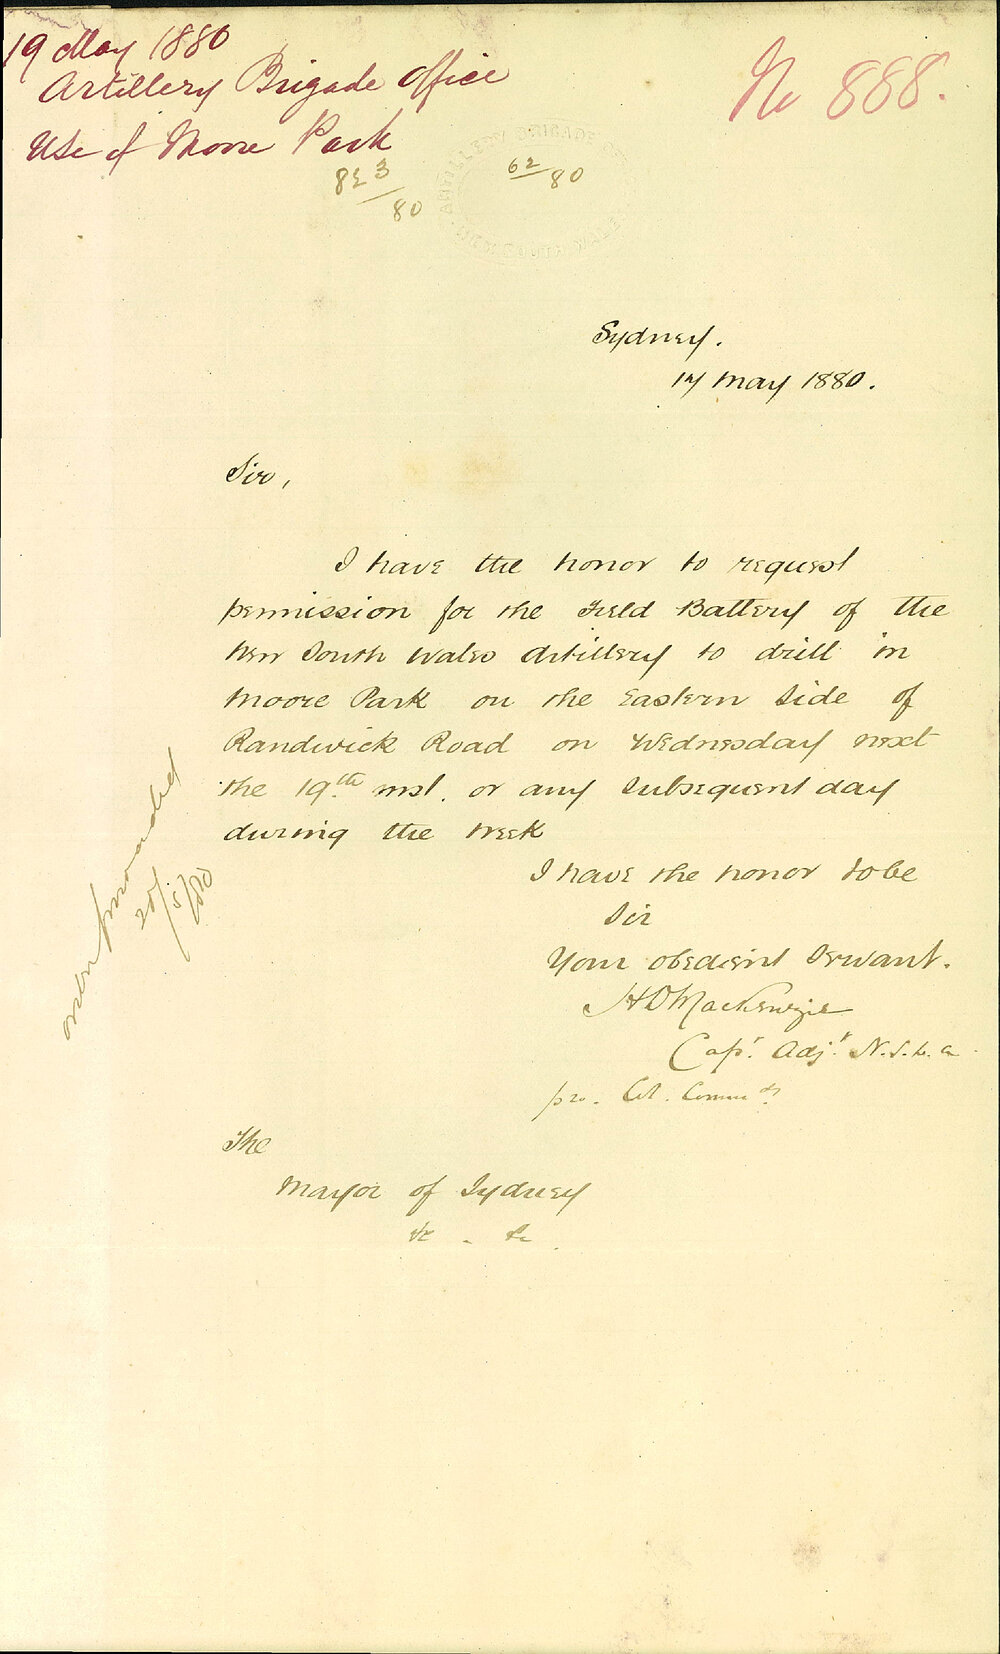 19 May 1880
Artillery Brigade Office
Use of Moore Park
No 888.
80
62/80
Sydney.
17 May 1880.
Sir,
I have the honor to request
permission for the Field Battery of the
New South Wales Artillery to drill in
Moore Park on the Eastern Side of
Randwick Road on Wednesday next
the 19th inst. or any subsequent day
during the week
I have the honor to be
Sir
Your obedient Servant.
HDMackenzie
Capt. Adjt. N.S.W.A.
pro. Col. Commdt
The
Mayor of Sydney
&c . &c .
20/5/80